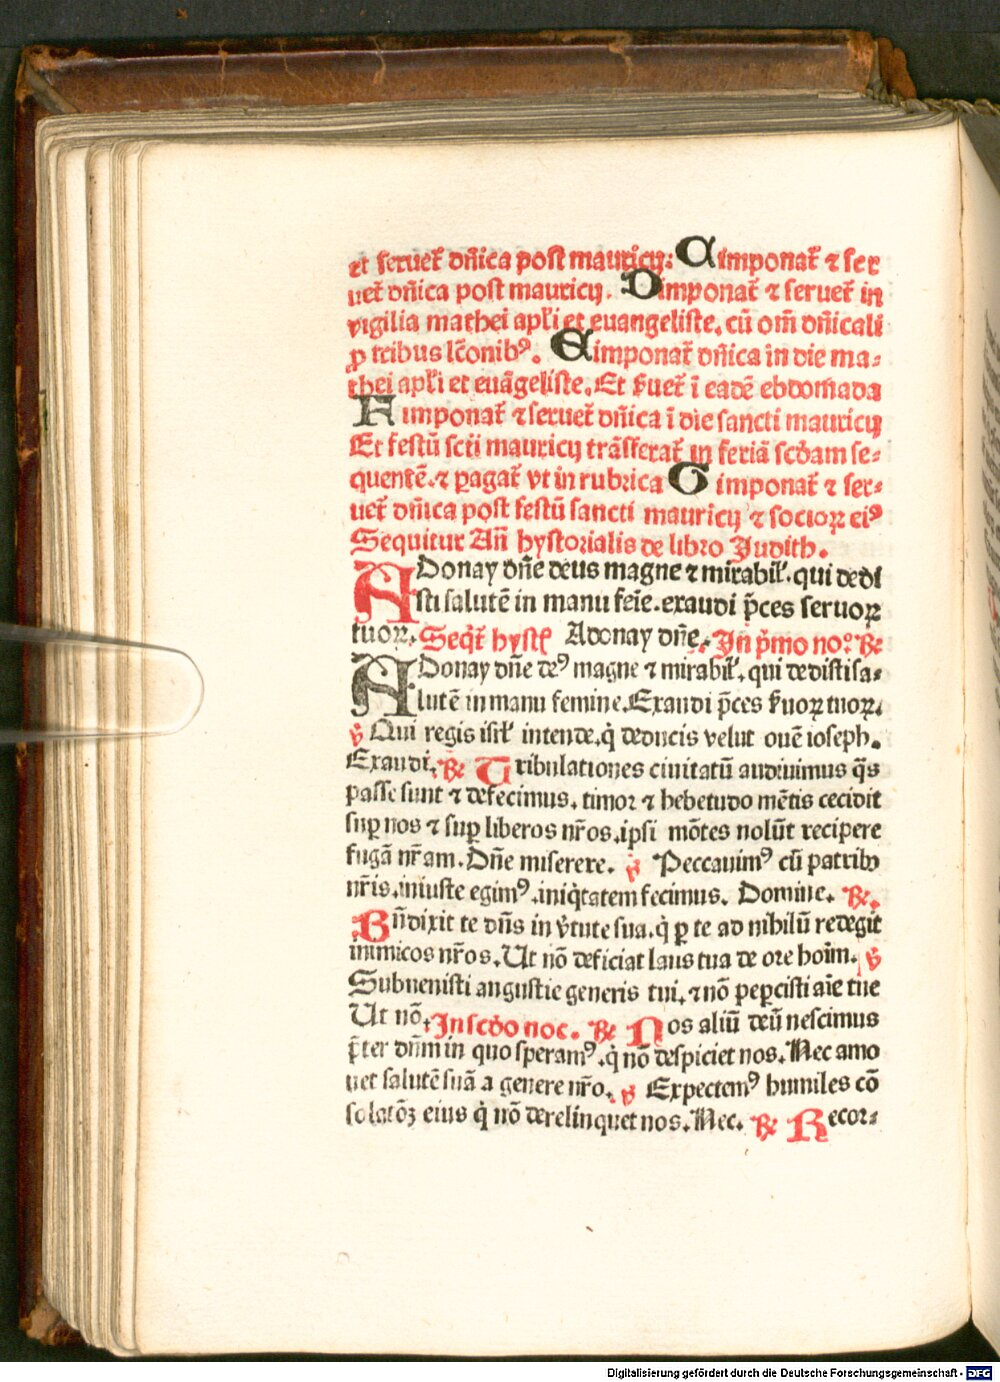 et seruet᷑ dn̄ica post mauricij: C imponat᷑ ⁊ ser
uet᷑ dn̄ica post mauricij. D imponat᷑ ⁊ seruet᷑ in
vigilia mathei apl̄i et euangeliste, cū om̄ dn̄icali
ꝓ tribus lc̄onibꝰ. E imponat᷑ dn̄ica in die ma⸗
thei apl̄i et euāgeliste. Et s̄uet᷑ ī eadē ebdomada
F imponat᷑ ⁊ seruet᷑ dn̄ica ī die sancti mauricij
Et festū scti mauricij trāsferat᷑ in feriā scdam se⸗
quentē. ⁊ ꝑagat᷑ vt in rubrica G imponat᷑ ⁊ ser⸗
uet᷑ dn̄ica post festū sancti mauricij ⁊ socioꝝ eiꝰ
Sequitur An̄ hystorialis de libro Judith.
ADonay dn̄e deus magne ⁊ mirabil̛. qui dedi
sti salutē in manu feīe. exaudi p̄ces seruoꝝ
tuoꝝ. Seqt᷑ hyst᷑ Adonay dn̄e. In p̄mo noº ℞
ADonay dn̄e deꝰ magne ⁊ mirabil̛. qui dedisti sa⸗
lutē in manu femine. Exaudi p̄ces s̄uoꝝ tuoꝝ.
℣ Qui regis isrl̛ intende. q̇ deducis velut ouē ioseph.
Exaudi. ℞ Tribulationes ciuitatū audiuimus q̄s
passe sunt ⁊ defecimus. timor ⁊ hebetudo mētis cecidit
suꝑ nos ⁊ suꝑ liberos nr̄os. ipsi mōtes nolūt recipere
fugā nr̄am. Dn̄e miserere. ℣ Peccauimꝰ cū patribꝫ
nr̄is. iniuste egimꝰ. iniq̇tatem fecimus. Domine. ℞.
Bn̄dixit te dn̄s in v̄tute sua. q̇ ꝑ te ad nihilū redegit
inimicos nr̄os. Ut nō deficiat laus tua de ore hoīm. ℣
Subuenisti angustie generis tui. ⁊ nō peꝑcisti aīe tue
Ut nō. In scdo noc. ℞ Nos aliū deū nescimus
p̄ter dn̄m in quo speramꝰ. q̇ nō despiciet nos. Nec amo
uet salutē suā a genere nr̄o. ℣ Expectemꝰ humiles cō
solatōꝫ eius q̇ nō derelinquet nos. Nec. ℞ Recor⸗
Digitalisierung gefördert durch die Deutsche Forschungsgemeinschaft - DFG